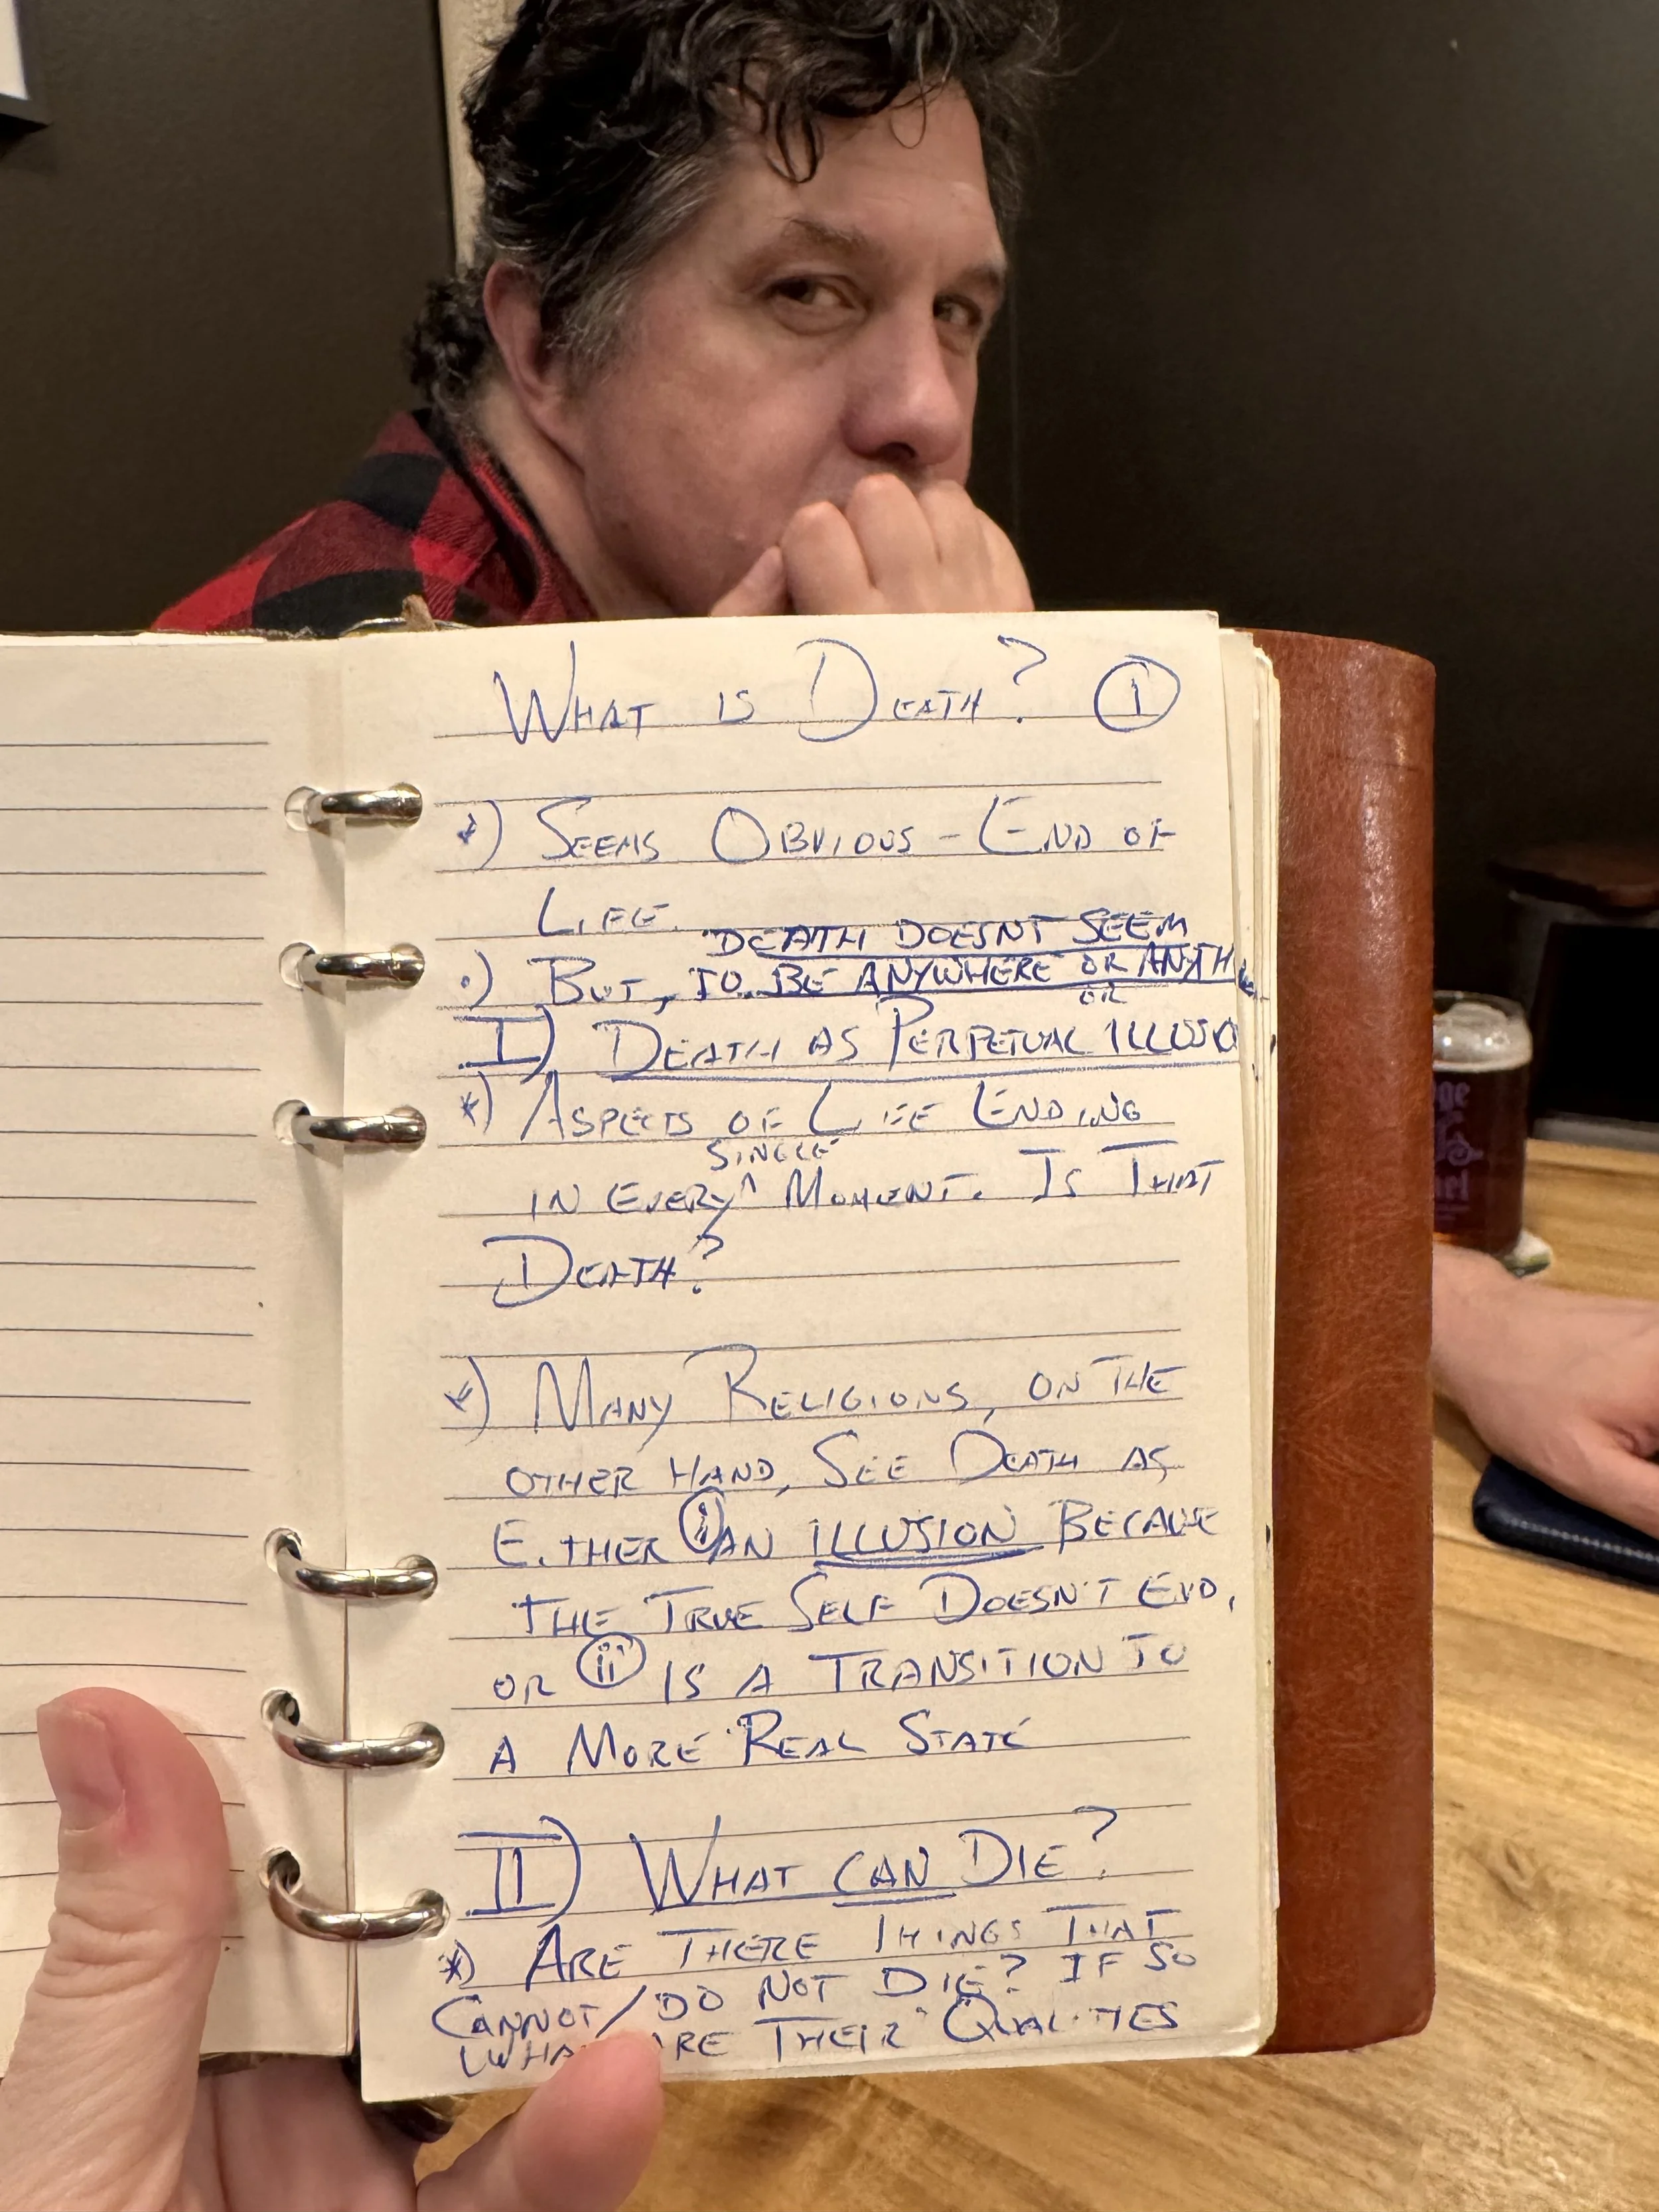 WHAT IS DEATH? 1
*) SEEMS OBVIOUS - END OF
LIFE.
DEATH DOESNT SEEM
•) BUT, TO BE ANYWHERE OR ANYTH
OR
I) DEATH AS PERPETUAL ILLUSIO
*) ASPECTS OF LIFE ENDING
SINGLE
IN EVERY ^ MOMENT. IS THAT
DEATH?
*) MANY RELIGIONS, ON THE
OTHER HAND, SEE DEATH AS
EITHER i AN ILLUSION BECAUSE
THE TRUE SELF DOESN'T END,
OR ii IS A TRANSITION TO
A MORE REAL STATE
II) WHAT CAN DIE?
*) ARE THERE THINGS THAT
CANNOT/DO NOT DIE? IF SO
WHA ARE THEIR QUALITIES